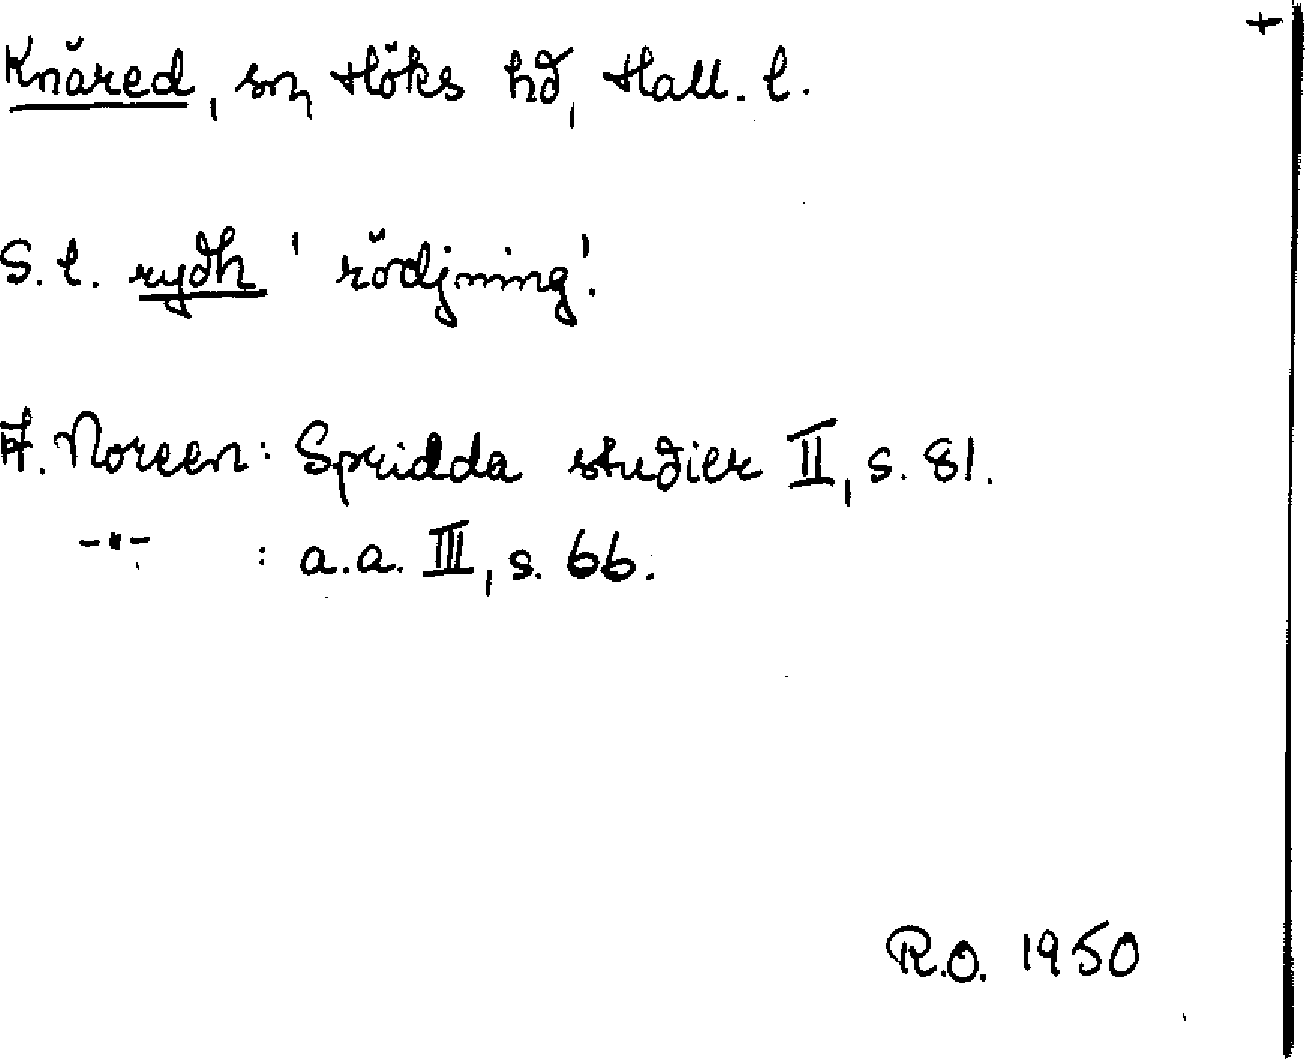 +
Knäred, sn, Höks hd, Hall. l.
S. l. rydh 'rödjning'.
A. Noreen: Spridda studier II, s. 81.
-"- : a.a. III, s. 66.
R.O. 1950